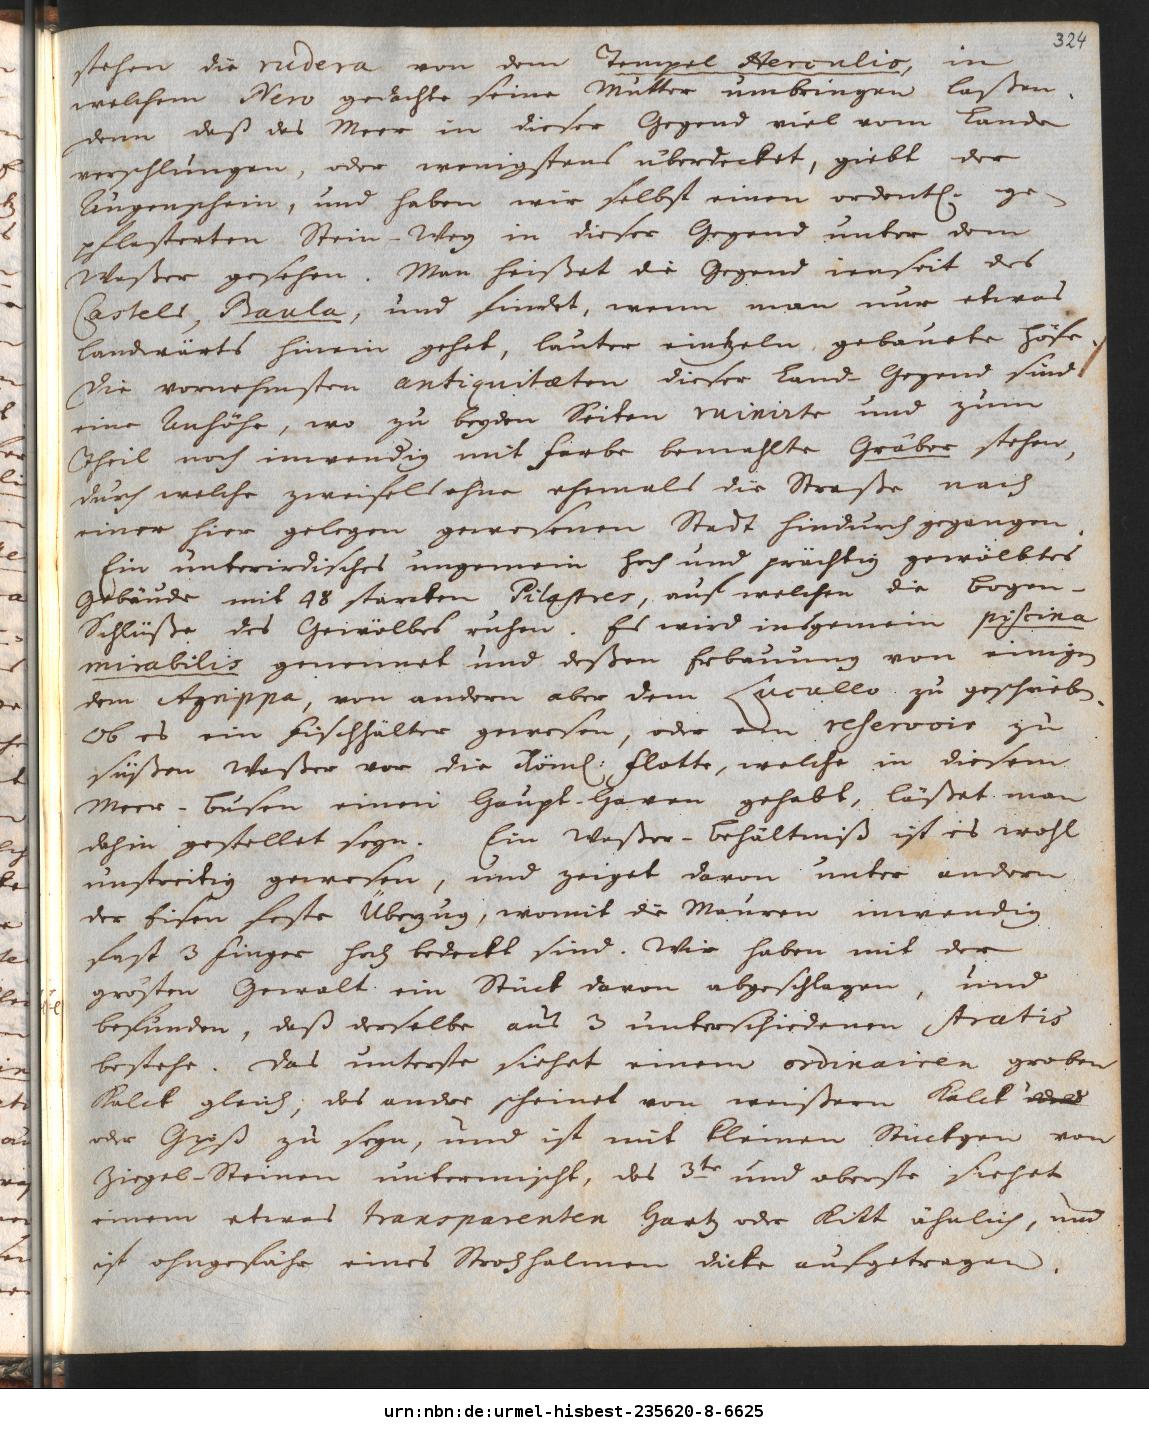 324
stehen die rudera von dem Tempel Herculis, in
welchem Nero gedachte seine Mutter umbringen laßen.
denn daß das Meer in dieser Gegend viel vom Lande
verschlungen, oder wenigstens überdecket, giebt der
Augenschein, und haben wir selbst einen ordentl. ge-
pflasterten Stein-Weg in dieser Gegend unter dem
Waßer gesehen. Man heißet die Gegend ienseit des
Castels, Baula, und findet, wenn man nur etwas
landwärts hinein gehet, lauter eintzeln gebauete Höfe.
Die vornehmsten antiquitæten dieser Land-Gegend sind
eine Anhöhe, wo zu beyden Seiten ruinirte und zum
Theil noch inwendig mit Farbe bemahlte Gräber stehen,
durch welche zweifelsohne ehemals die Straße nach
einer hier gelegen gewesenen Stadt hindurch gegangen.
Ein unterirdisches ungemein hoch und prächtig gewölbtes
Gebäude mit 48 starcken Pilastres, auf welchen die Bogen-
Schlüße des Gewölbes ruhen. Es wird insgemein piscina
mirabilis genennet und deßen Erbauung von einigen
dem Agrippa, von andern aber dem Lucullo zu geschrieben.
Ob es ein Fischhälter gewesen, oder ein reservoir zu
süßen Waßer vor die Röml: Flotte, welche in diesem
Meer-Busen einen Haupt-Haven gehabt, läßet man
dahin gestellet seyn. Ein Waßer-Behältniß ist es wohl
unstreitig gewesen, und zeiget davon unter andern
der Eisen feste Überzug, womit die Mauren inwendig
fast 3 Finger hoch bedeckt sind. Wir haben mit der
grösten Gewalt ein Stück davon abgeschlagen, und
befunden, daß derselbe aus 3 unterschiedenen stratis
bestehe. Das unterste siehet einem ordinairen groben
Kalck gleich, das andre scheinet von weißern Kalck
oder Gyps zu seyn, und ist mit kleinen Stückgen von
Ziegel-Steinen untermischt, das 3te und oberste siehet
einem etwas transparenten Hartz oder Kitt ähnlich, und
ist ohngefähr eines Strohhalmen dicke aufgetragen.
urn:nbn:de:urmel-hisbest-235620-8-6625